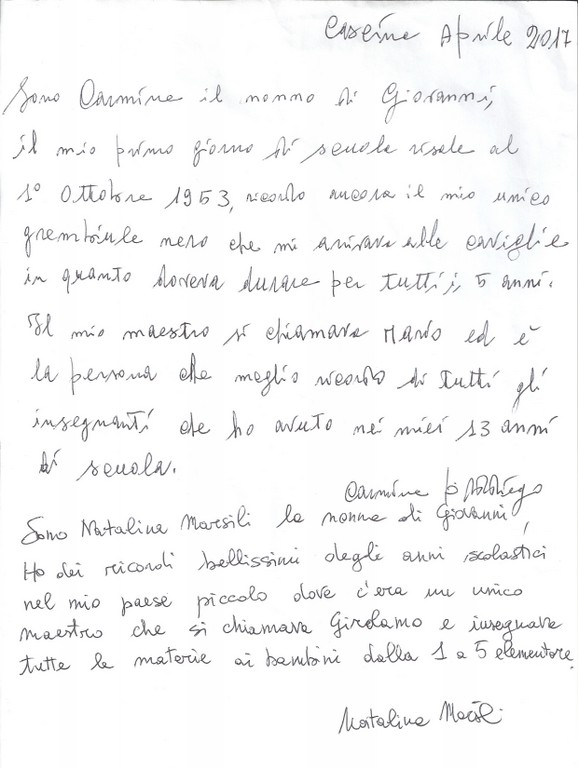 Casține Aprile 2017
Sono Carmine il nonno di Giovanni,
il mio primo giorno di scuola risale al
1° Ottobre 1953, ricordo ancora il mio unico
grembiule nero che mi arrivava alle caviglie
in quanto doveva durare per tutti i 5 anni.
Il mio maestro si chiamava Mario ed è
la persona che meglio ricordo di tutti gli
insegnanti che ho avuto nei miei 13 anni
di scuola.
Carmine
Sono Natalina Marsili la nonna di Giovanni,
Ho dei ricordi bellissimi degli anni scolastici
nel mio paese piccolo dove c'era un unico
maestro che si chiamava Girolamo e insegnava
tutte le materie ai bambini dalla 1 a 5 elementare.
Natalina Marsili